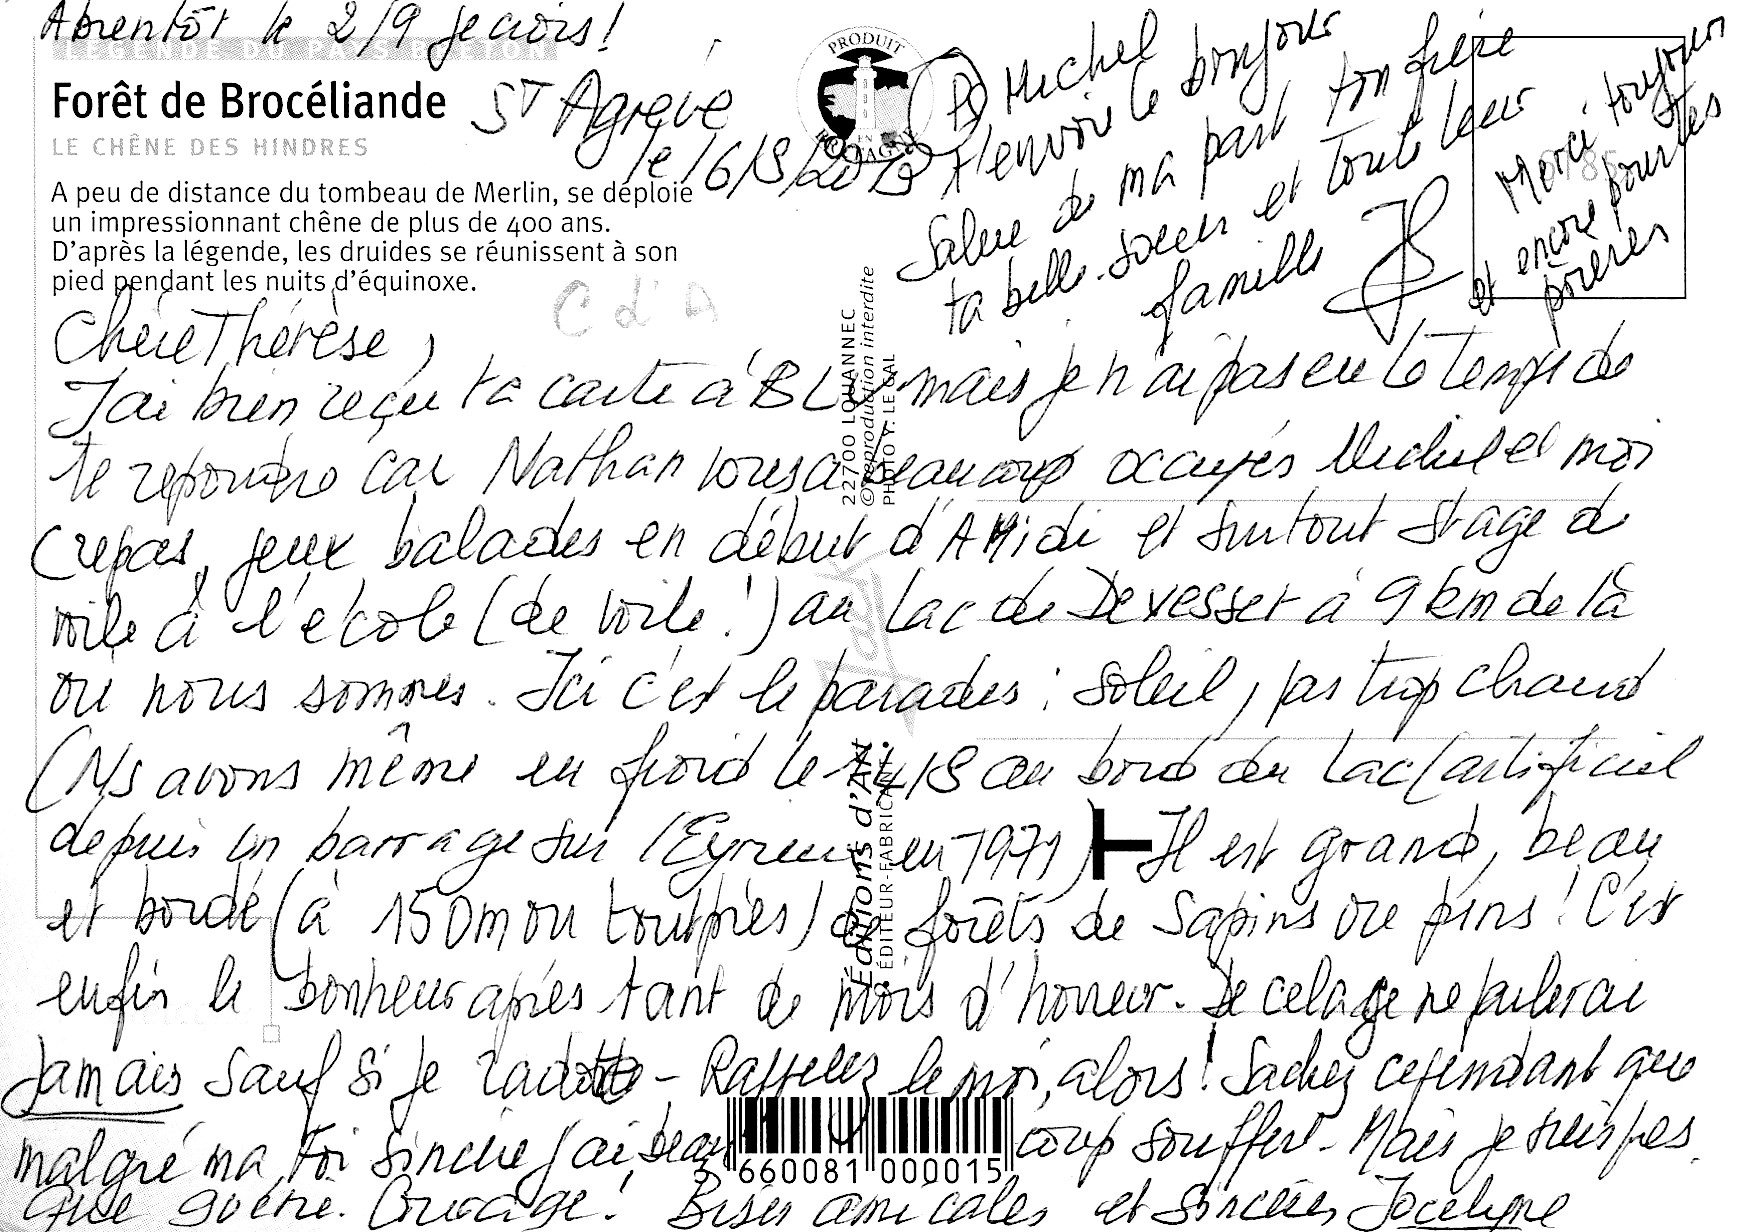 Abientôt le 2/9 je crois!
LEGENDE DU PAYS BRETON
Forêt de Brocéliande
LE CHÊNE DES HINDRES
A peu de distance du tombeau de Merlin, se déploie
un impressionnant chêne de plus de 400 ans.
D'après la légende, les druides se réunissent à son
pied pendant les nuits d'équinoxe.
St Agrève
le 16/8/2013
PRODUIT
EN
BRETAGNE
PS Michel
t'envoie le bonjour
Salue de ma part ton frère
ta belle-soeur et toute leur
famille
Merci toujours
et encore pour tes
prières
C d'A
Chère Thérèse,
J'ai bien reçu ta carte à BLV mais je n'ai pas eu le temps de
te répondre car Nathan nous a beaucoup occupés Michel et moi
(repas, jeux balades en début d'AMidi et surtout stage de
voile à l'école (de voile!) au Lac de Devesset à 9 km de là
où nous sommes. Ici c'est le paradis : soleil, pas trop chaud
(Ns avons même eu froid le 14/8 au bord du Lac (artificiel
depuis un barrage sur l'Eyrieux en 1971) Il est grand, beau
et bordé (à 150m ou tout près) de forêts de sapins ou pins! C'est
enfin le bonheur après tant de mois d'horreur. De cela je ne parlerai
Jamais sauf si je radotte - Rappelez le moi, alors! Sachez cependant que
malgré ma Foi sincère j'ai beaucoup souffert - Mais je suis pres
que guérie. Courage! Bises amicales et sincères, Jocelyne
22700 LOUANNEC
©Reproduction interdite
PHOTO Y. LE GAL
Jack
Éditions d'Art
ÉDITEUR-FABRICANT
3 660081 000015